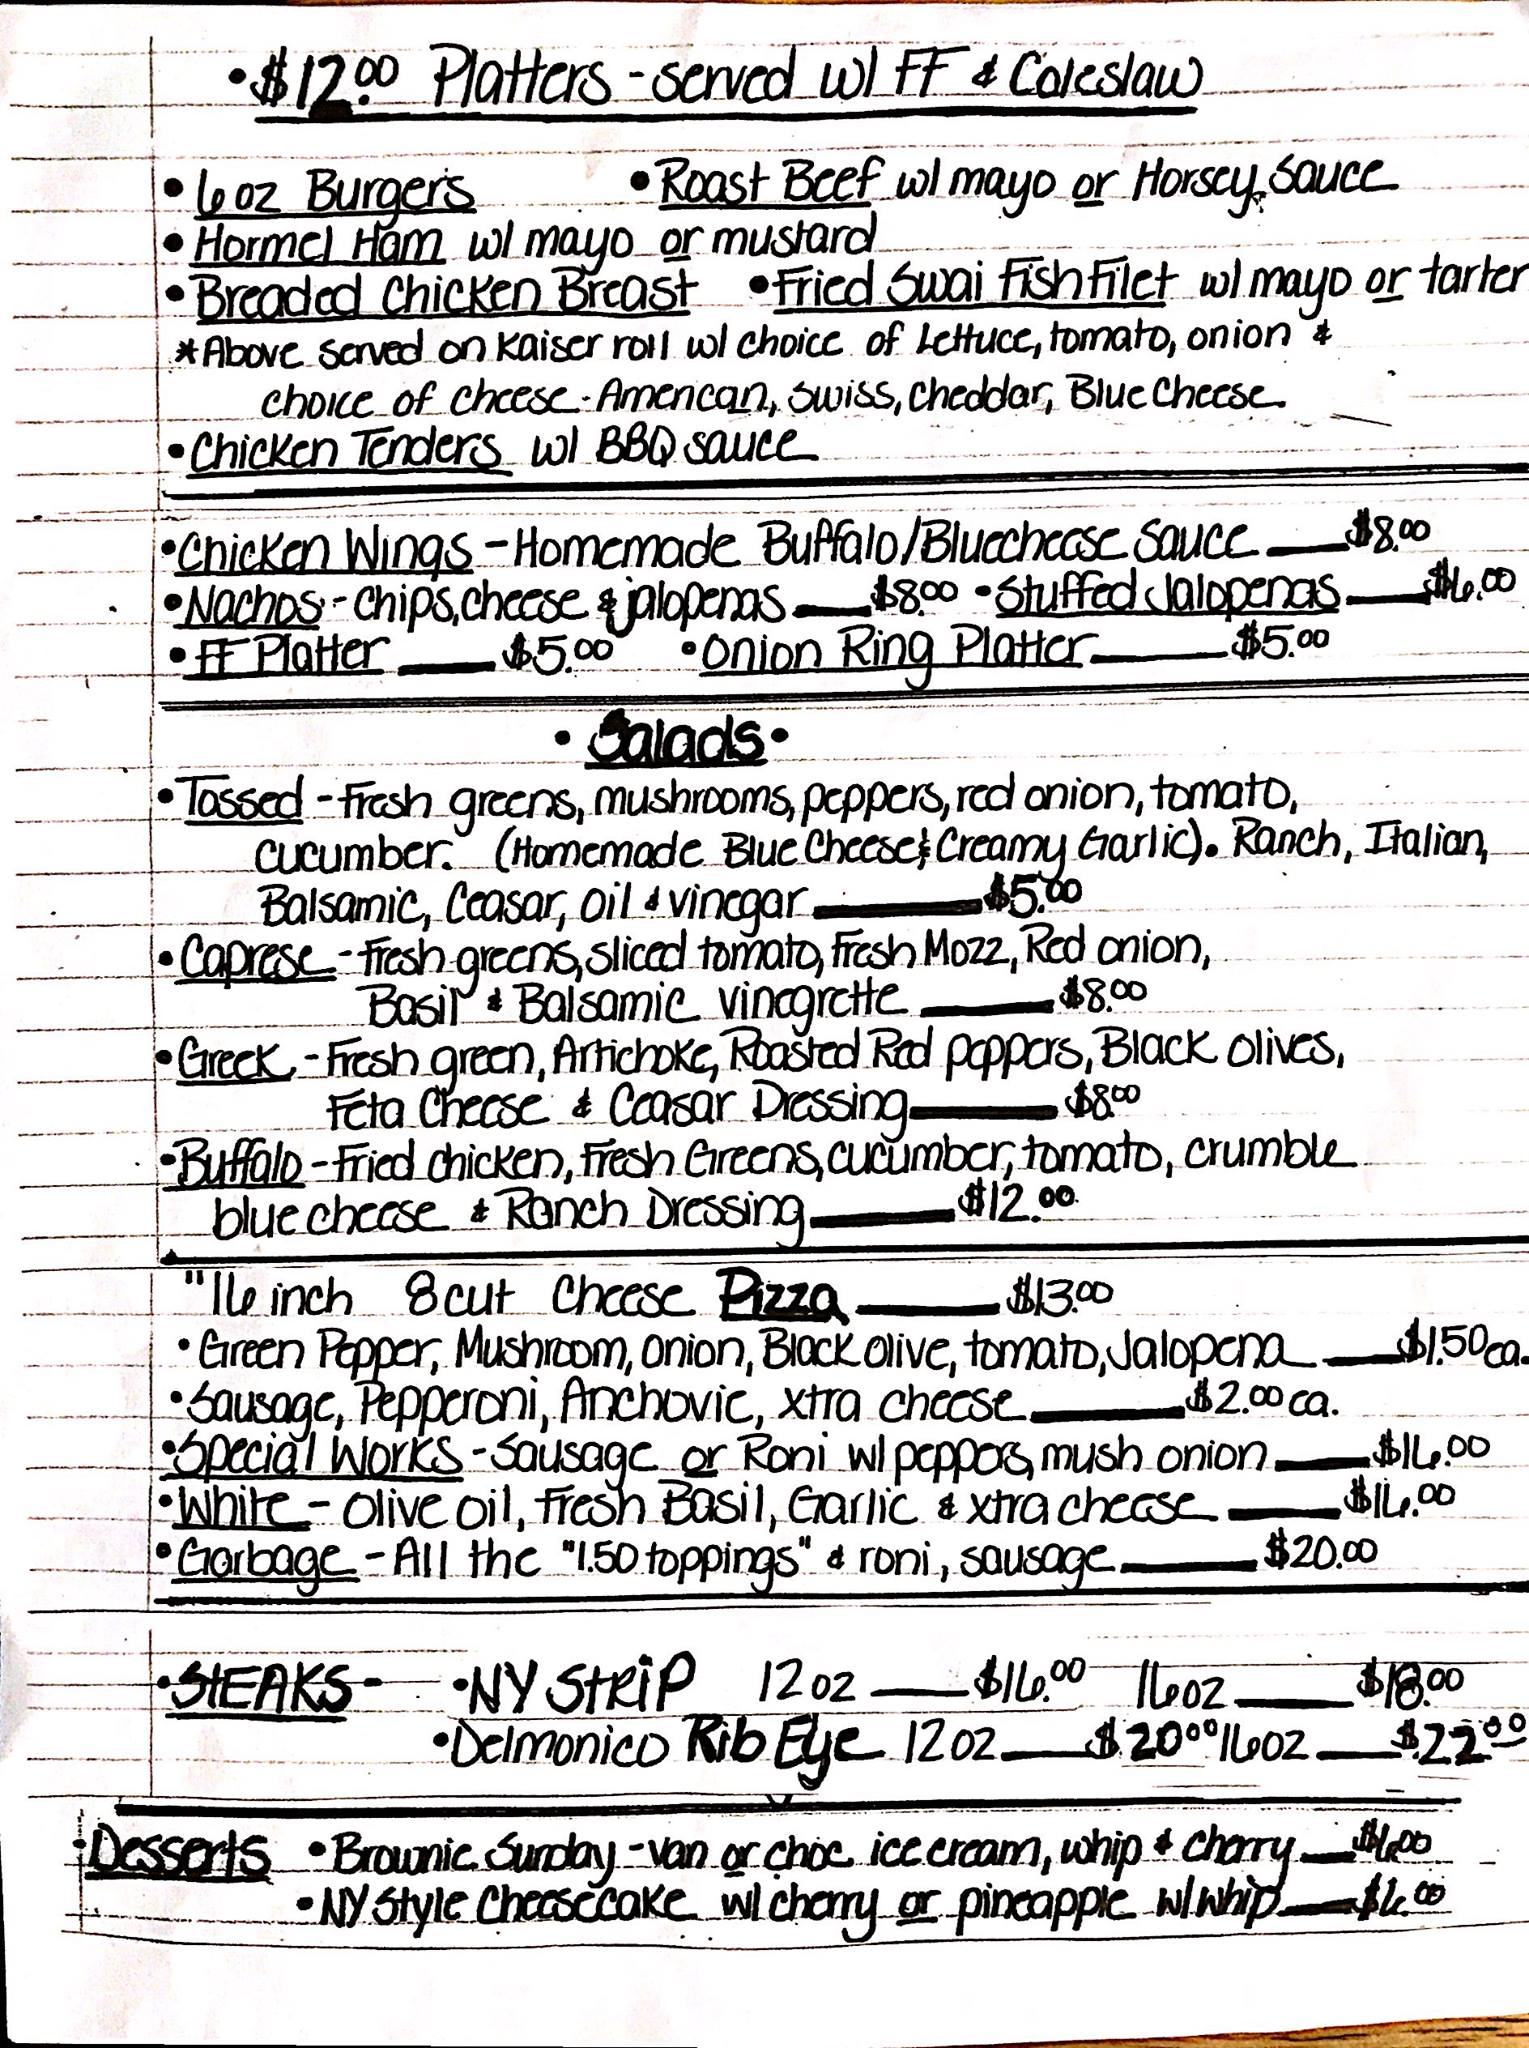 • $12.00 Platters - served w/ FF & Coleslaw
• 6 oz Burgers • Roast Beef w/ mayo or Horsey Sauce
• Hormel Ham w/ mayo or mustard
• Breaded Chicken Breast • Fried Swai Fish Filet w/ mayo or tarter
* Above served on Kaiser roll w/ choice of Lettuce, tomato, onion &
choice of cheese - American, Swiss, Cheddar, Blue Cheese
• Chicken Tenders w/ BBQ sauce
• Chicken Wings - Homemade Buffalo/Bluecheese Sauce — $8.00
• Nachos - chips, cheese & jalopenas — $8.00 • Stuffed Jalopenas — $6.00
• FF Platter — $5.00 • Onion Ring Platter — $5.00
• Salads •
• Tossed - Fresh greens, mushrooms, peppers, red onion, tomato,
cucumber. (Homemade Blue Cheese & Creamy Garlic). Ranch, Italian,
Balsamic, Ceasar, oil & vinegar — $5.00
• Caprese - Fresh greens, sliced tomato, Fresh Mozz, Red onion,
Basil & Balsamic vinegrette — $8.00
• Greek - Fresh green, Artichoke, Roasted Red peppers, Black olives,
Feta Cheese & Ceasar Dressing — $8.00
• Buffalo - Fried chicken, Fresh Greens, cucumber, tomato, crumble
blue cheese & Ranch Dressing — $12.00
"16 inch 8 cut Cheese Pizza — $13.00
• Green Pepper, Mushroom, onion, Black olive, tomato, Jalopena — $1.50 ea.
• Sausage, Pepperoni, Anchovie, xtra cheese — $2.00 ea.
• Special Works - Sausage or Roni w/ peppers, mush onion — $16.00
• White - olive oil, Fresh Basil, Garlic & xtra cheese — $16.00
• Garbage - All the "1.50 toppings" & roni, sausage — $20.00
• STEAKS - • NY STRIP 12 oz — $16.00 16 oz — $18.00
• Delmonico Rib Eye 12 oz — $20.00 16 oz — $22.00
• Desserts • Brownie Sunday - van or choc ice cream, whip & cherry — $6.00
• NY Style Cheesecake w/ cherry or pineapple w/ whip — $6.00